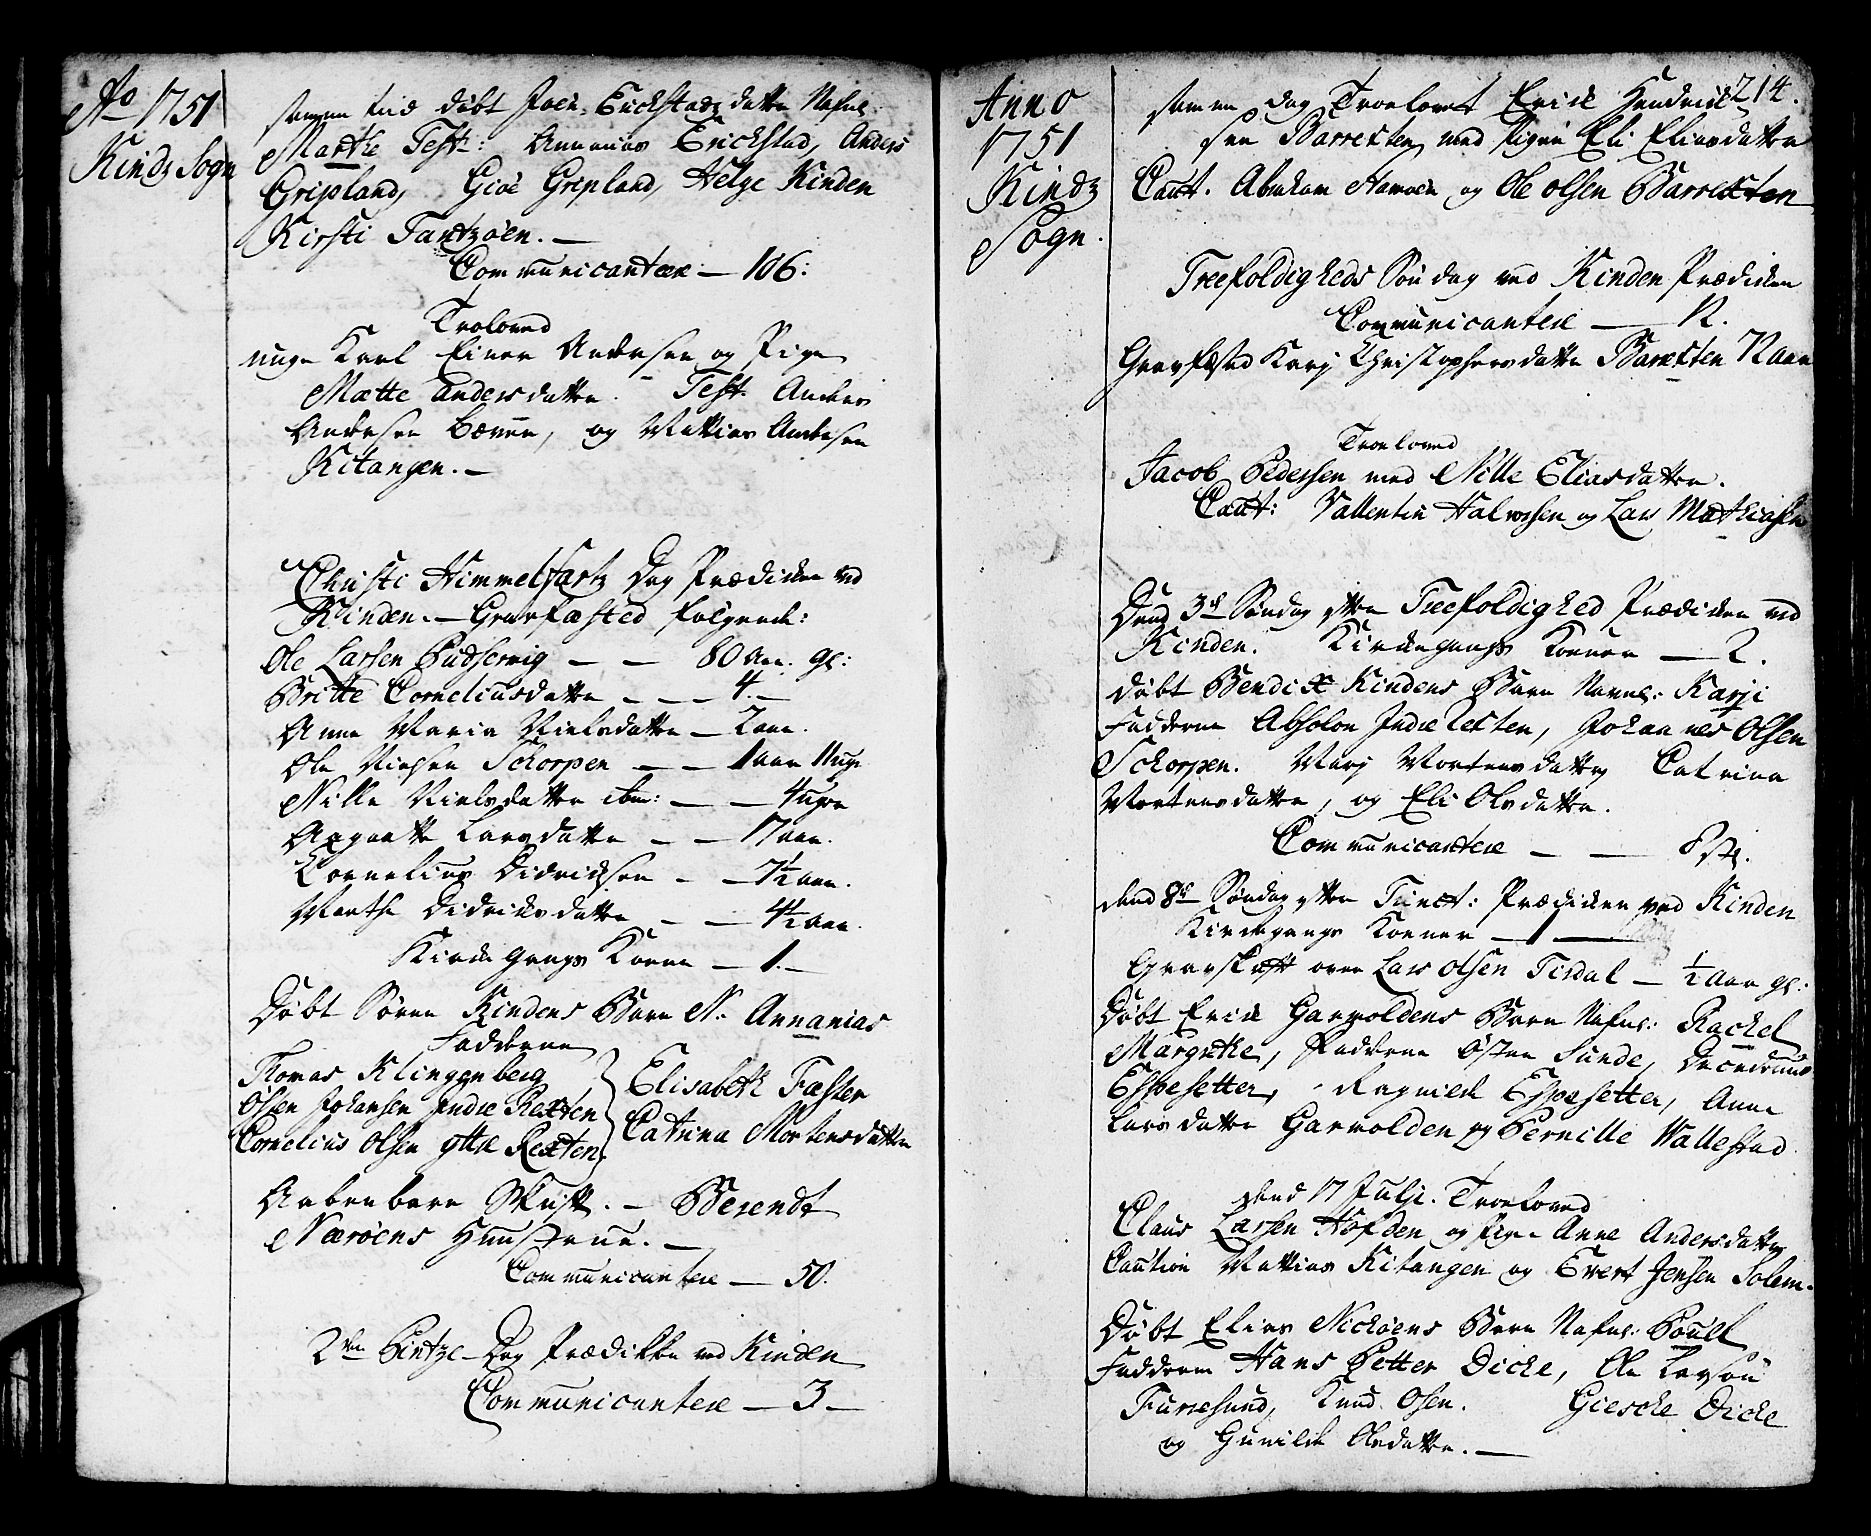 Ao 1751
Kindz Sogn
samme tiid døbt Joen Erickstadz datter Nafnl.
Marthe Test: Ananias Erickstad, Anders
Gripland, Gioe Gripland, Helge Kinden
Kirsti Tantzøen. —
Communicantere — 106:
Troloved
unge Karl Einer Andersen og Pige
Mætte Andersdatter. Test. Anders
Andersen og Mattias Andersen
Kitangen. —
Christi Himmelfartz Dag Prædicken ved
Kinden. — Gravfæsted følgende:
Ole Larsen Gudservig — — 80 aar gl:
Britte Corneliusdatter — — — 4. —
Anne Maria Nielsdatter — 2 aar.
Ole Nielsen Schorpen — — 1 aar 11 uger
Nille Nielsdatter ibm: — — 4 uger
Larsdatter — — 17 aar.
Cornelius Didricksen — — 7½ aar.
Marthe Didricksdatter — — 4½ aar.
Kirckegangs Koene — 1. —
Døbt Søren Kindens Barn N. Annanias
Fadderne
Thomas Klingenberg
Olsen Johansen Indre Rexten
Cornelius Olsen ytre Rexten
Elisabeth Fæster
Catrina Mortensdatter
Aabenbare Skrift. — Berendt
Nærøens Huustrue. —
Communicantere — 50.
2den Pintze-Dag Prædikke ved Kinden
Communicantere — 3 —
Anno
1751
Kindz
Sogn.
214.
samme dag Troelovet Erick Hendrick
sen Barrexten med Pigen Eli Eliasdatter
Caut. Abraham Havøen og Ole Olsen Barrexten
Treefoldigheds Søndag ved Kinden Prædicken
Communicantere — 12.
Gravfæsted Karj Christophersdatter Barexten 12 aar
Troeloved
Jacob Pedersen med Nille Eliasdatter.
Caut: Vallentin Halvorsen og Lars Mathiasen
Dend 3de Søndag efter Treefoldighed Prædicken ved
Kinden. Kirckegangs Koener — 2.
Døbt Bendix Kindens Barn Navnl: Karji
Fadderne Absolon Indre Rexten, Johannes Olsen
Schorpen. Marj Mortensdatter Catrina
Mortensdatter, og Eli Olsdatter.
Communicantere — —
dend 8de Søndag efter Trinit: Prædicken ved Kinden
Kirckegangs Koener — 1 —
Gravskrift over Lars Olsen Tirdal — ½ aar gl:
Døbt Erick Garvoldens Barn Nafnl: Rachel
Margrethe, Fadderne Østen Sunde,
Espesetter, Ragnild Espesetter, Anne
Larsdatter Garvolden og Pernille Vallestad
dend 17 Julji. Troeloved
Claus Larsen Hofden og Pige Anne Andersdatter
Caution Mattias Kitangen og Evert Jensen Solem.
Døbt Elias Nichøens Barn Nafnl: Pouel
Fadderne Hans Petter Dicke, Ole Larsøn
Furresund, Knud Osen. Giesche Dicke
og Gunild Olsdatter. —